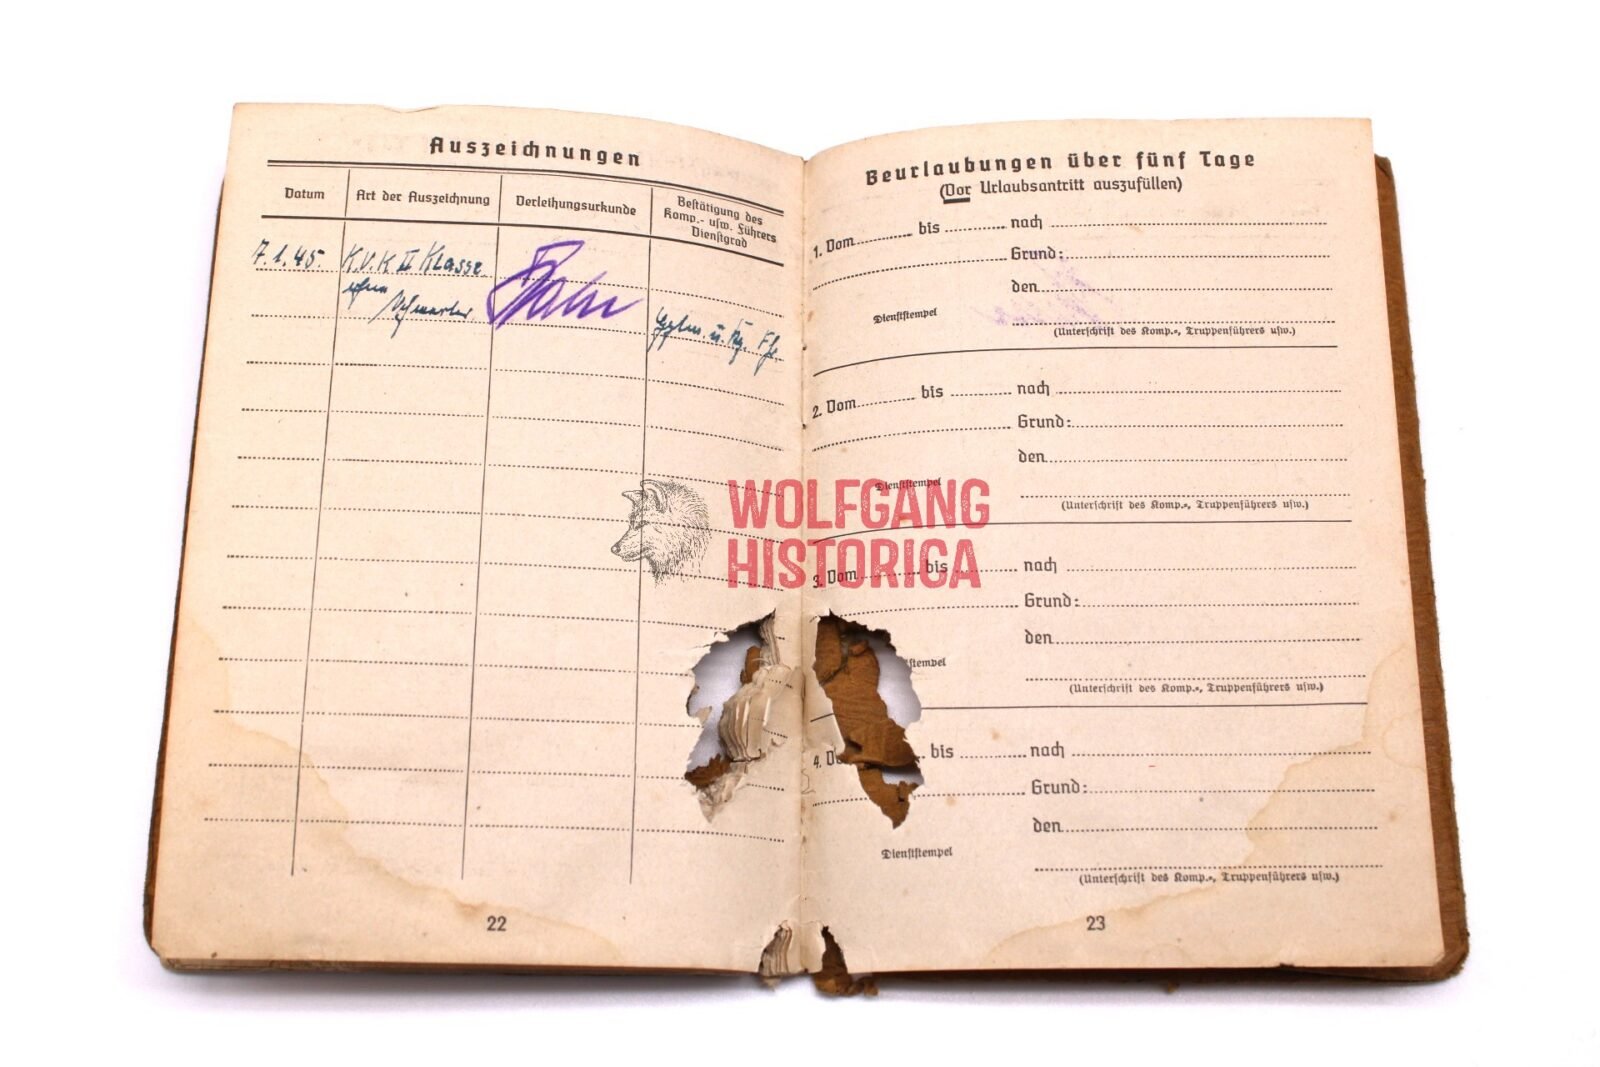 Auszeichnungen
Datum
Art der Auszeichnung
Verleihungsurkunde
Bestätigung des
Komp.- usw. Führers
Dienstgrad
7.1.45.
K.V.K II Klasse
ohne
Schwerter
u. Kp. Fhr.
22
Beurlaubungen über fünf Tage
(Vor Urlaubsantritt auszufüllen)
1. Vom bis nach
Grund:
den
Dienststempel
(Unterschrift des Komp.-, Truppenführers usw.)
2. Vom bis nach
Grund:
den
Dienststempel
(Unterschrift des Komp.-, Truppenführers usw.)
WOLFGANG
HISTORICA
3. Vom bis nach
Grund:
den
stempel
(Unterschrift des Komp.-, Truppenführers usw.)
4. Vo bis nach
Grund:
den
Dienststempel
(Unterschrift des Komp.-, Truppenführers usw.)
23